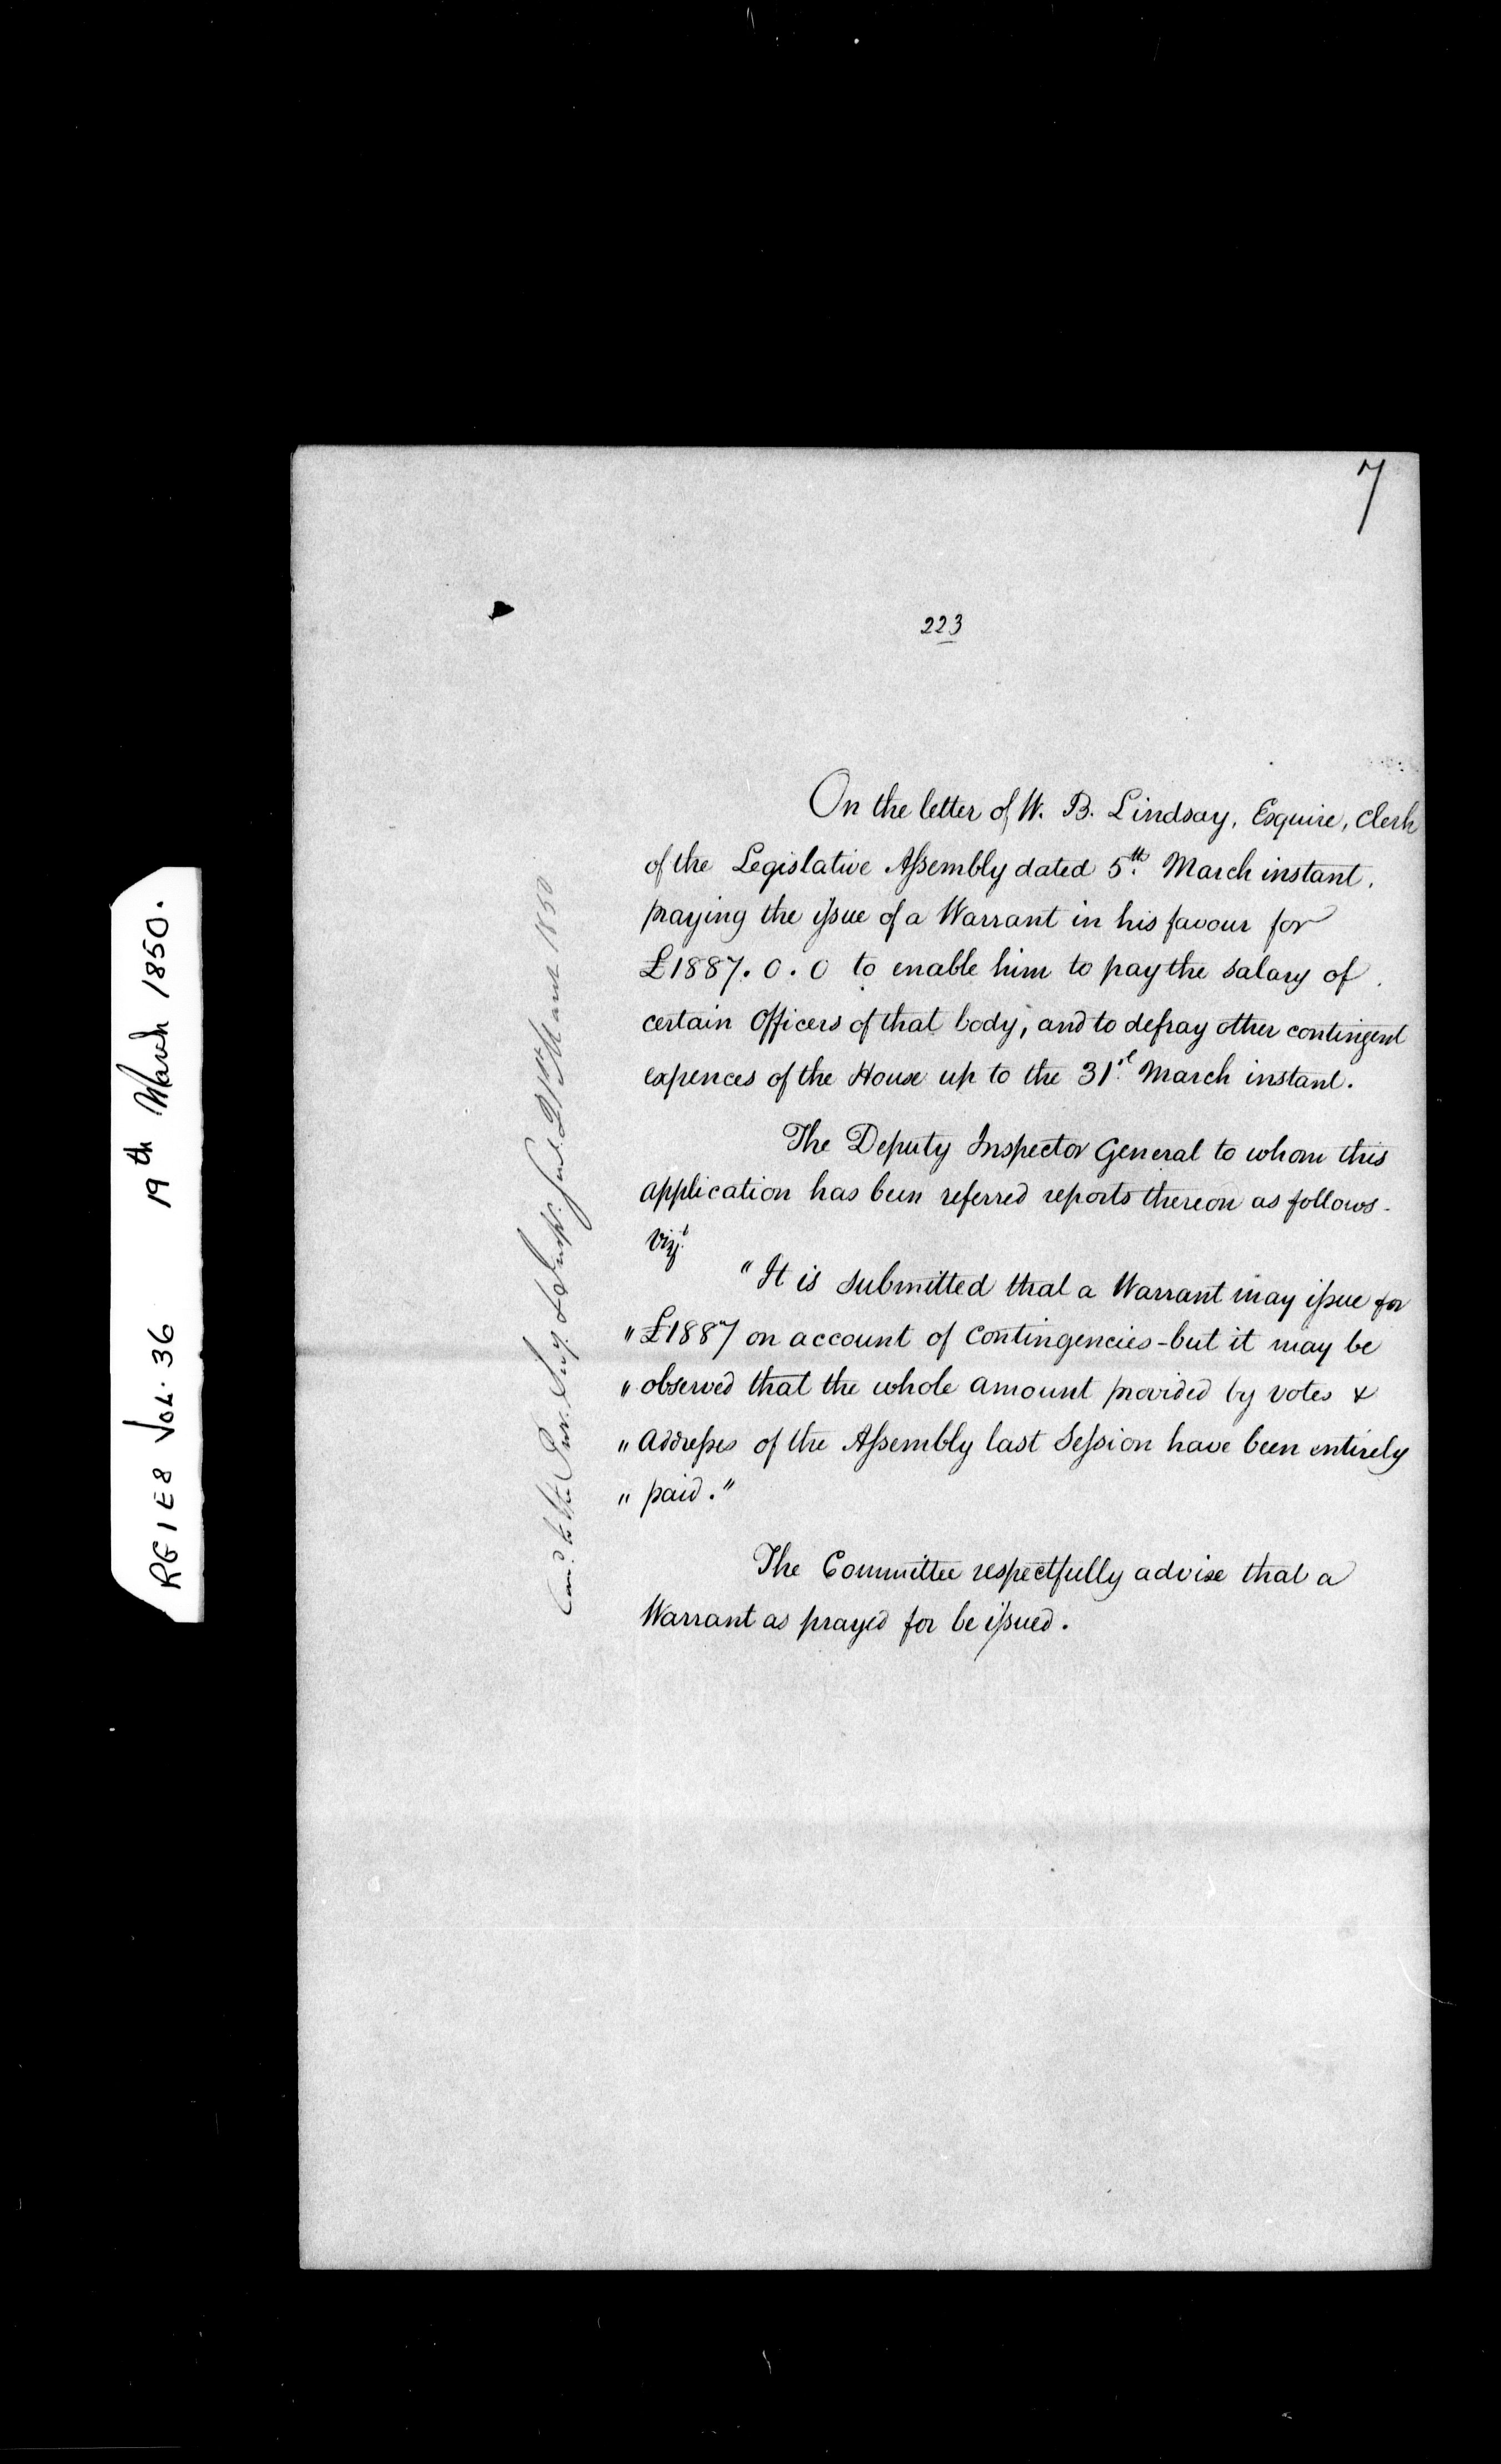 7
223
On the letter of W. B. Lindsay, Esquire, Clerk
of the Legislative Assembly dated 5th March instant,
praying the issue of a Warrant in his favour for
£1887. 0. 0 to enable him to pay the salary of
certain Officers of that body, and to defray other contingent
expences of the House up to the 31st March instant.
The Deputy Inspector General to whom this
application has been referred reports thereon as follows.
Vizt
"It is submitted that a Warrant may issue for
"£1887 on account of Contingencies - but it may be
"observed that the whole amount provided by votes &
"Addresses of the Assembly last Session have been entirely
"paid."
The Committee respectfully advise that a
Warrant as prayed for be issued.
Comd. to the Secy. & Inspr. Genl. March 1850
RG 1 E8 VOL. 36 19th March 1850.